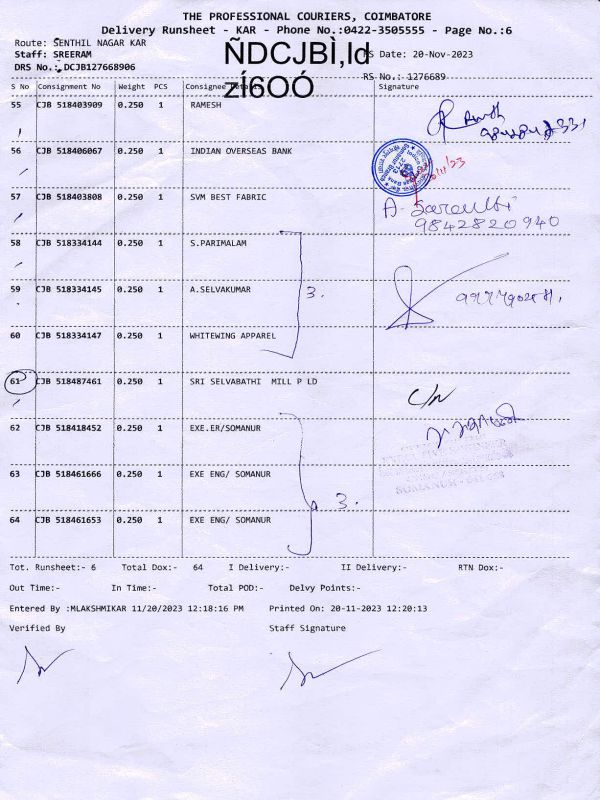 THE PROFESSIONAL COURIERS, COIMBATORE
Delivery Runsheet - KAR - Phone No.:0422-3505555 - Page No.:6
Route: SENTHIL NAGAR KAR
Staff: SREERAM
ÑDCJBÌ,Id
zÍ6OÓ
RS Date: 20-Nov-2023
DRS No.: DCJB127668906
RS No.: 1276689
S No Consignment No Weight PCS Consignee Details Signature
55 CJB 518403909 0.250 1 RAMESH
56 CJB 518406067 0.250 1 INDIAN OVERSEAS BANK
57 CJB 518403808 0.250 1 SVM BEST FABRIC
9842820940
58 CJB 518334144 0.250 1 S.PARIMALAM
59 CJB 518334145 0.250 1 A.SELVAKUMAR 3.
60 CJB 518334147 0.250 1 WHITEWING APPAREL
61 CJB 518487461 0.250 1 SRI SELVABATHI MILL P LD
62 CJB 518418452 0.250 1 EXE.ER/SOMANUR
63 CJB 518461666 0.250 1 EXE ENG/ SOMANUR
3.
64 CJB 518461653 0.250 1 EXE ENG/ SOMANUR
Tot. Runsheet:- 6 Total Dox:- 64 I Delivery:- II Delivery:- RTN Dox:-
Out Time:- In Time:- Total POD:- Delvy Points:-
Entered By :MLAKSHMIKAR 11/20/2023 12:18:16 PM Printed On: 20-11-2023 12:20:13
Verified By Staff Signature